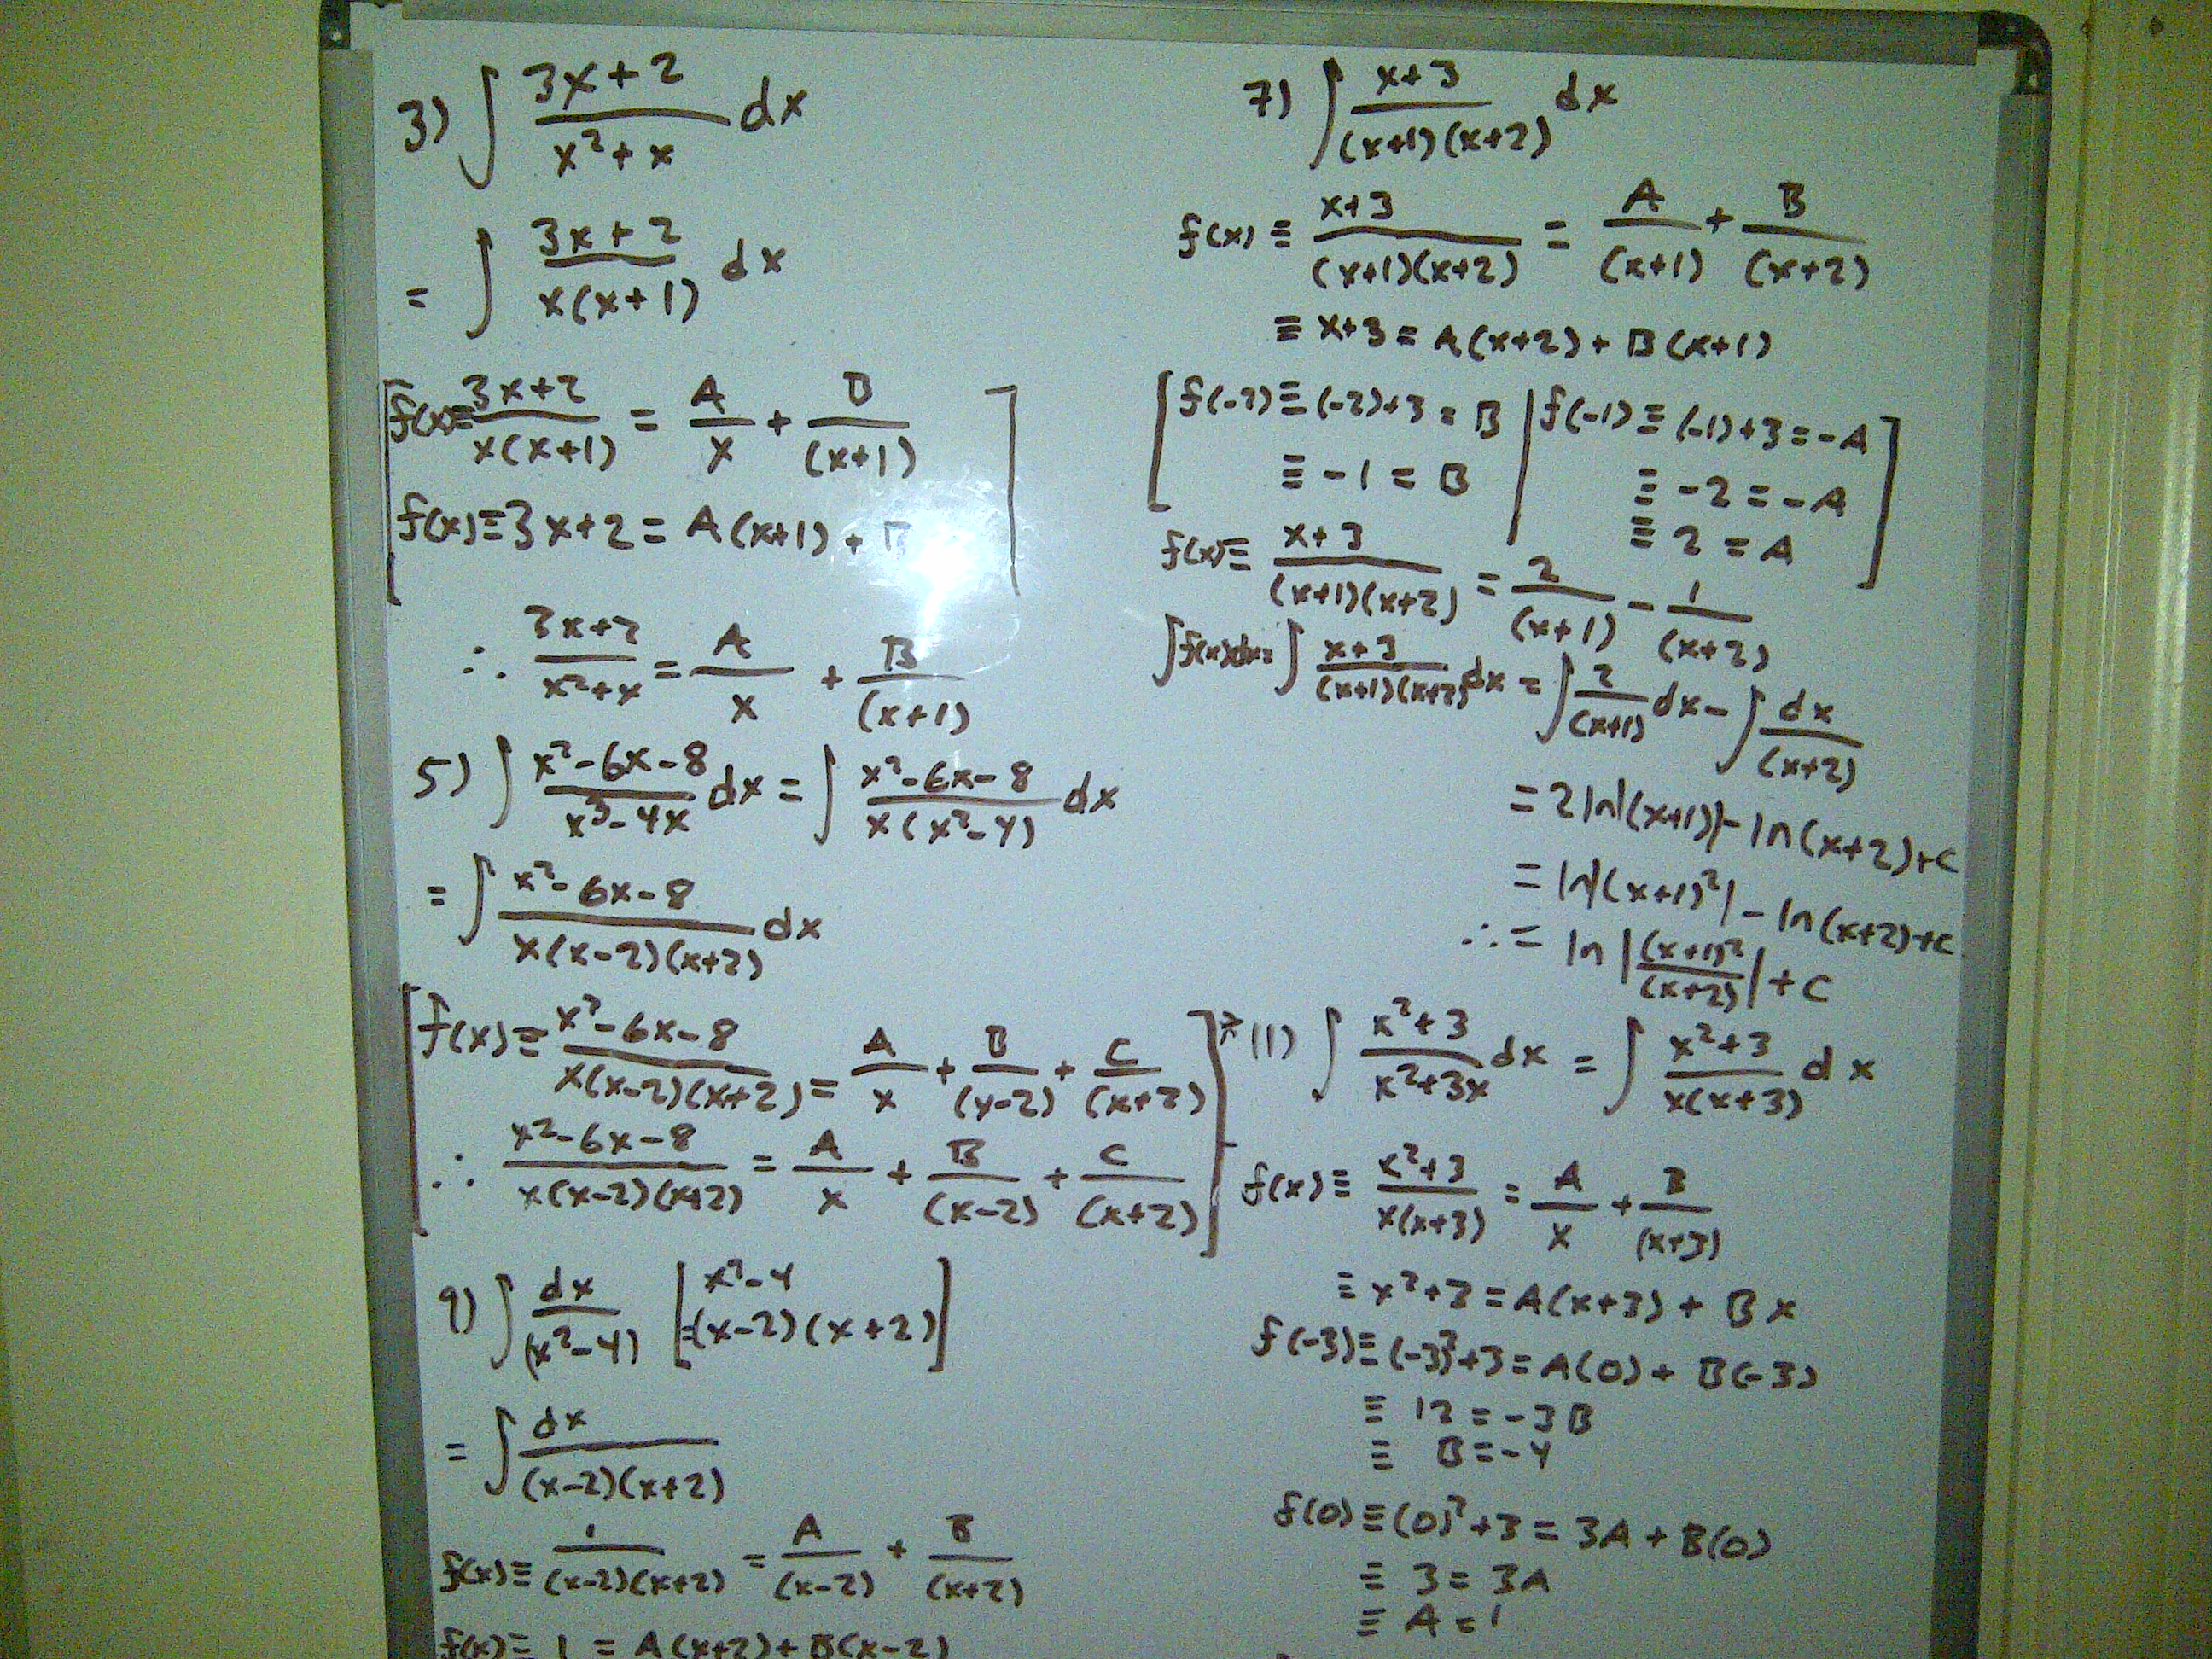 3) ∫ 3x+2 / x²+x dx
= ∫ 3x+2 / x(x+1) dx
[f(x)≡ 3x+2 / x(x+1) = A / x + B / (x+1)
f(x)≡3x+2 = A(x+1) + B ]
∴ 3x+2 / x²+x = A / x + B / (x+1)
5) ∫ x²-6x-8 / x³-4x dx = ∫ x²-6x-8 / x(x²-4) dx
= ∫ x²-6x-8 / x(x-2)(x+2) dx
[f(x)≡ x²-6x-8 / x(x-2)(x+2) = A / x + B / (x-2) + C / (x+2)
∴ x²-6x-8 / x(x-2)(x+2) = A / x + B / (x-2) + C / (x+2) ]
9) ∫ dx / (x²-4) [ x²-4
=(x-2)(x+2) ]
= ∫ dx / (x-2)(x+2)
f(x)≡ 1 / (x-2)(x+2) = A / (x-2) + B / (x+2)
f(x)≡ 1 = A(x+2)+B(x-2)
7) ∫ x+3 / (x+1)(x+2) dx
f(x) ≡ x+3 / (x+1)(x+2) = A / (x+1) + B / (x+2)
≡ x+3 = A(x+2) + B(x+1)
[ f(-2)≡(-2)+3 = B | f(-1) ≡ (-1)+3 = -A
≡ -1 = B | ≡ -2 = -A
≡ 2 = A ]
f(x)≡ x+3 / (x+1)(x+2) = 2 / (x+1) - 1 / (x+2)
∫f(x)dx= ∫ x+3 / (x+1)(x+2) dx = ∫ 2 / (x+1) dx - ∫ dx / (x+2)
= 2 ln|(x+1)| - ln(x+2)+c
= ln|(x+1)²| - ln(x+2)+c
∴ = ln | (x+1)² / (x+2) | + C
*11) ∫ x²+3 / x²+3x dx = ∫ x²+3 / x(x+3) dx
f(x) ≡ x²+3 / x(x+3) = A / x + B / (x+3)
≡ x²+3 = A(x+3) + Bx
f(-3)≡(-3)²+3 = A(0) + B(-3)
≡ 12 = -3B
≡ B = -4
f(0) ≡ (0)²+3 = 3A + B(0)
≡ 3 = 3A
≡ A = 1